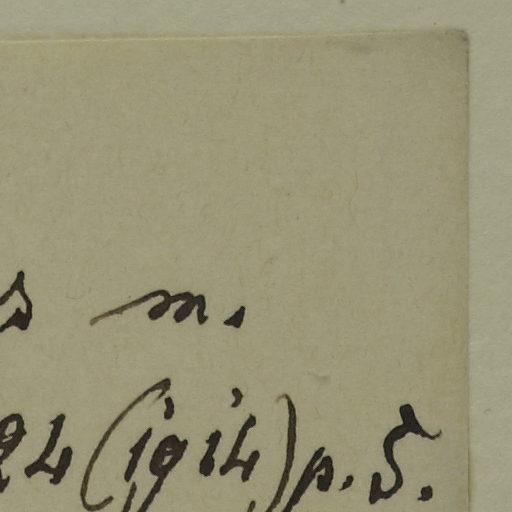 s m.
24 (1914) p. 5.